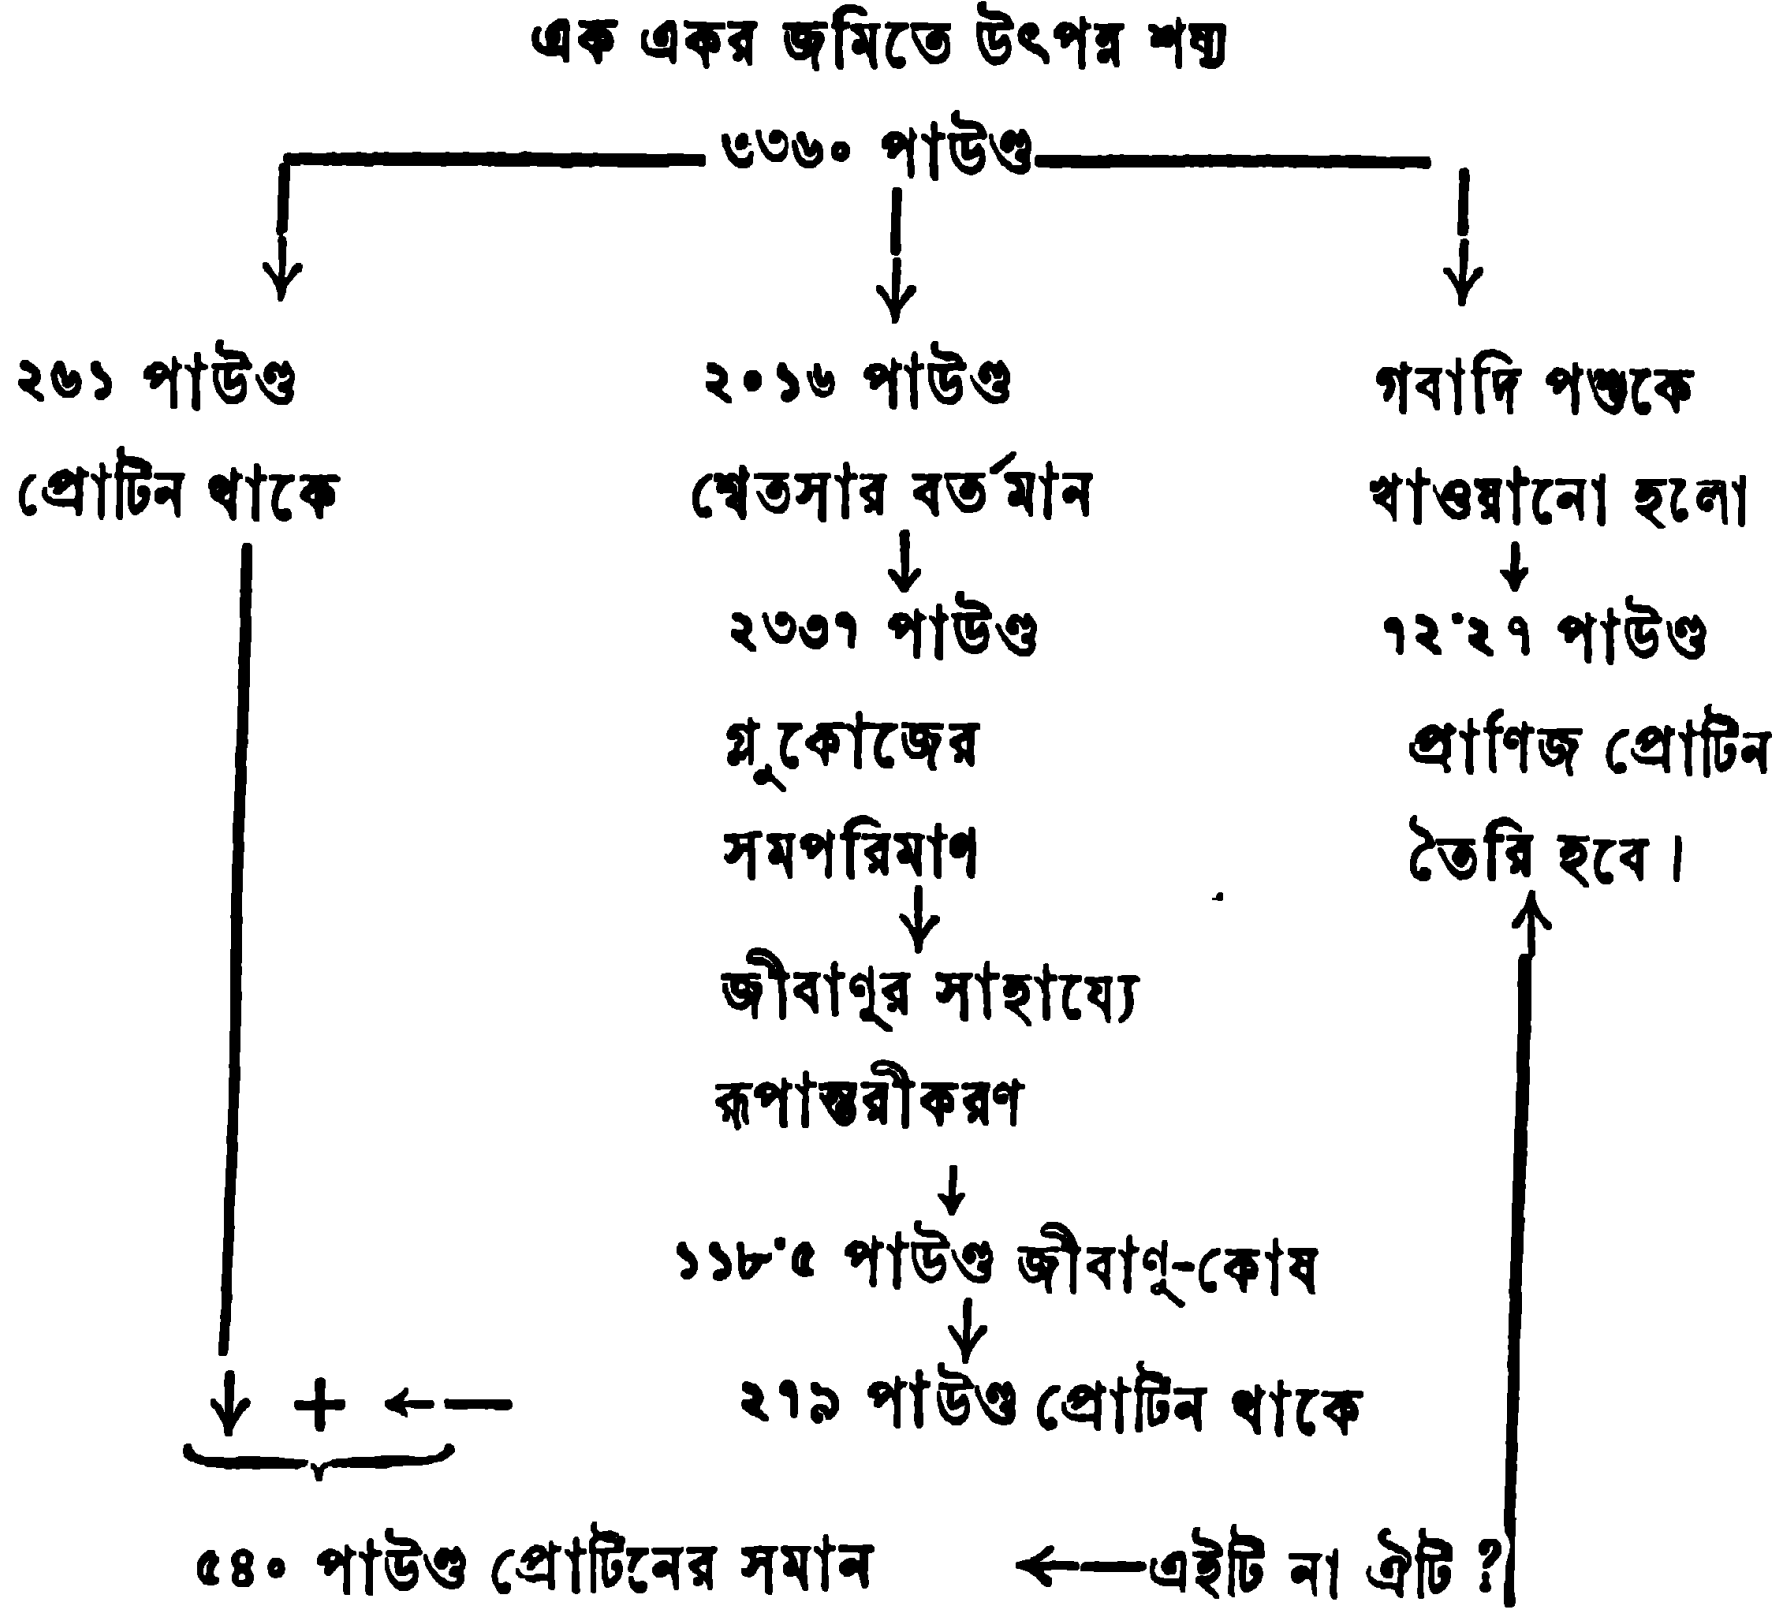 এক একর জমিতে উৎপন্ন শষ্য
৩৩৬০ পাউণ্ড
২৬১ পাউণ্ড
প্রোটিন থাকে
২০১৬ পাউণ্ড
শ্বেতসার বর্তমান
২৩৩৭ পাউণ্ড
গ্লুকোজের
সমপরিমাণ
জীবাণুর সাহায্যে
রূপান্তরীকরণ
১১৮·৫ পাউণ্ড জীবাণু-কোষ
২৭৯ পাউণ্ড প্রোটিন থাকে
গবাদি পশুকে
খাওয়ানো হলো
৭২·২৭ পাউণ্ড
প্রাণিজ প্রোটিন
তৈরি হবে।
+
৫৪০ পাউণ্ড প্রোটিনের সমান
এইটি না ঐটি ?